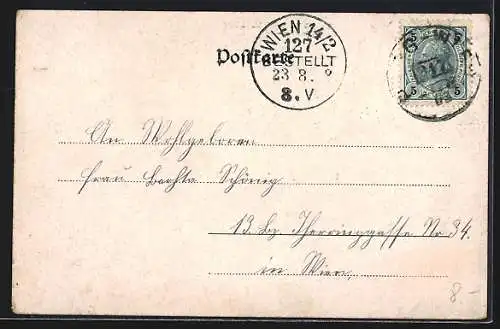 WIEN 14/2
127
Postkarte
BESTELLT
23 8.
8. V
5 5
An Wohlgeboren
Frau Bertha Schönig
13. Bz. Nr 34.
in Wien.
8-